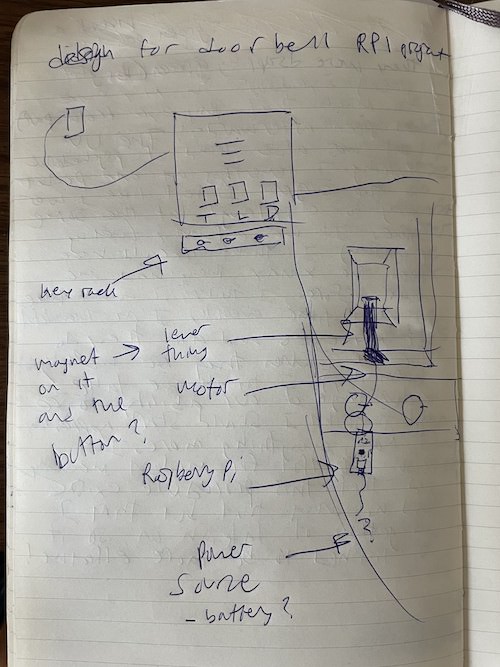 design for doorbell RPI project
T L D
key rack
lever
thing
magnet
on it
and the
button?
motor
Raspberry Pi
?
Power
source
- battery?